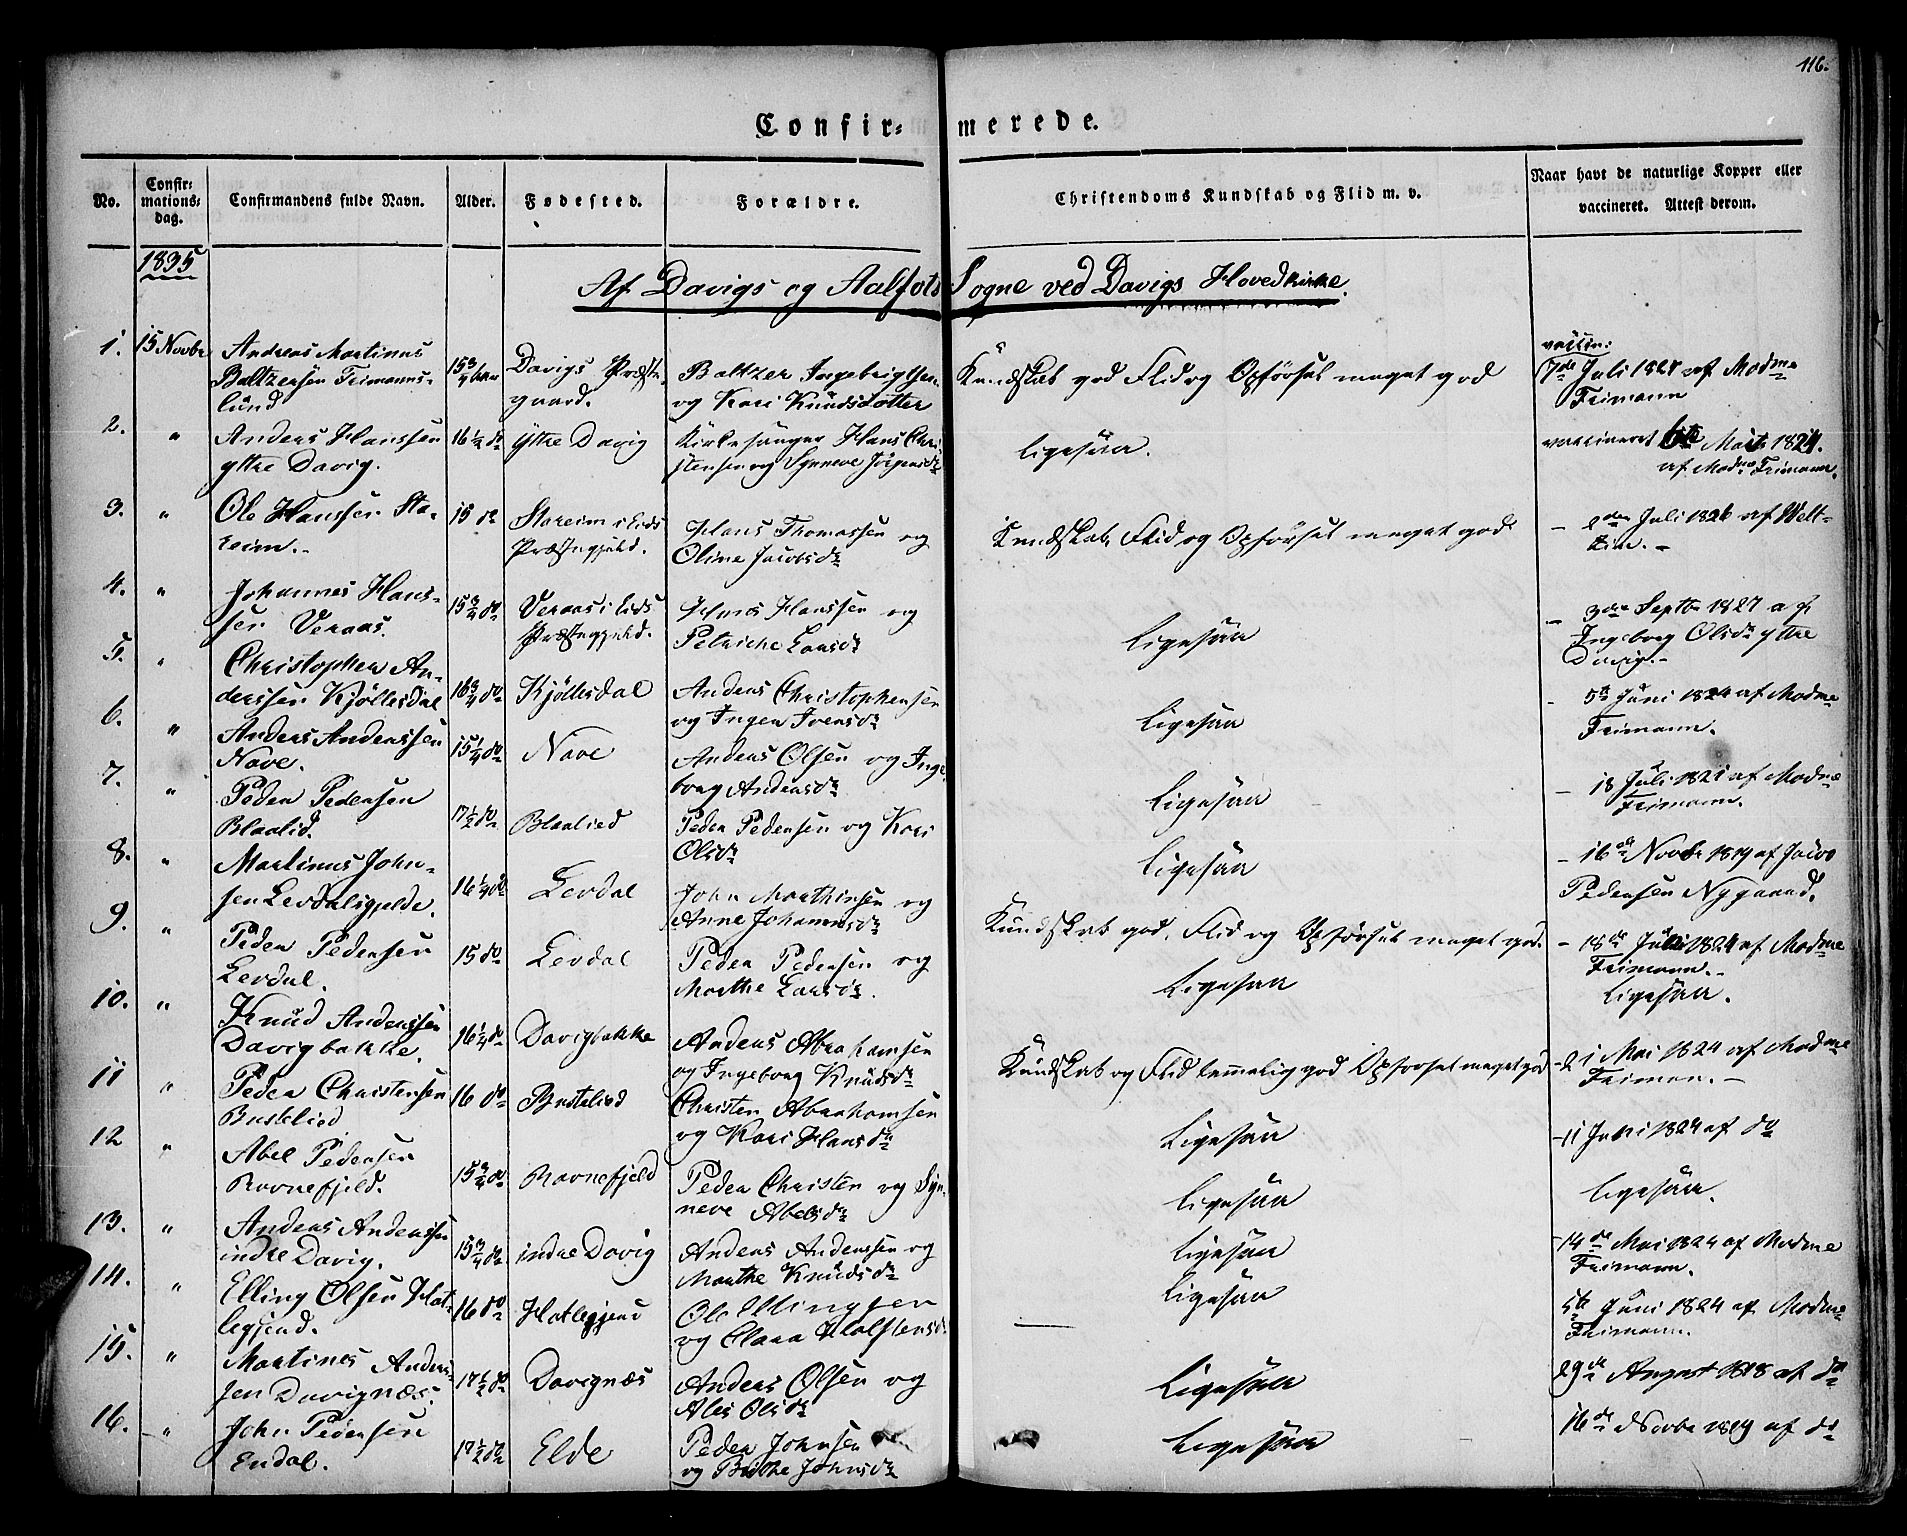 116.
Confir- merede.
No.
Confir-
mations-
dag.
Confirmandens fulde Navn.
Alder.
Fødested.
Forældre.
Christendoms Kundskab og Flid m. v.
Naar havt de naturlige Kopper eller
vaccineret. Attest derom.
1835
Af Davigs og Aalfots Sogne ved Davigs Hovedkirke.
1. 15 Novbr Andreas Martinus
Baltzersen Frimanns-
lund
15 3/4 Aar
Davigs Præste-
gaard.
Baltzer Ingebrigtsen
og Kari Knudsdotter
Kundskab god Flid og Opførsel meget god
vaccin:
7de Juli 1827 af Modme
Frimann
2. " Anders Hanssen
ytre Davig.
16 1/2 do
Ytre Davig
Kirkesanger Hans Chri
stensen og Synneve Jørgensdr
Ligesaa.
vaccineret 6te Marts 1824.
af Modme Frimann.
3. " Ole Hanssen Sto-
reim.-
15 do
Storeim i Eids
Præstegjeld.
Hans Thomassen og
Oline Jacobsdr
Kundskab, Flid og Opførsel meget god
- 2den Juli 1826 af Welt-
zin. -
4. " Johannes Hans-
sen Veraas.
15 3/4 do
Veraas i Eids
Præstegjeld.
Hans Hanssen og
Petriche Larsdr
Ligesaa
- 3die Septbr 1827 af
Ingeborg Olsdr ytre
Davig.-
5. " Christopher An-
derssen Kjøllesdal
16 3/4 do
Kjøllesdal
Anders Christophersen
og Inger Iversdr
Ligesaa
- 5te Juni 1824 af Modme
Frimann.
6. " Anders Anderssen
Nave.
15 1/4 do
Nave
Anders Olsen og Inge
borg Andersdr
Ligesaa
- 18 Juli 1821 af Modme
Frimann.
7. " Peder Pedersen
Blaalid.
17 1/2 do
Blaalied
Peder Pedersen og Kari
Olsdr
Ligesaa
- 16de Novbr 1819 af Jacob
Pedersen Nygaard.
8. " Martinus John-
sen Levdalsgjelde.
16 1/4 do
Levdal
John Mathissen og
Anne Johannesdr
Kundskab god, Flid og Opførsel meget god.
- 18de Juli 1824 af Modme
Frimann.-
9. " Peder Pedersen
Levdal.
15 do
Levdal
Peder Pedersen og
Marthe Larsdr.
Ligesaa
Ligesaa.
10. " Knud Anderssen
Davigbakke.
16 1/4 do
Davigbakke
Anders Abrahamsen
og Ingeborg Knudsdr
Kundskab og Flid temmelig god Opførsel meget god
- 21 Mai 1824 af Modme
Friman. -
11 " Peder Christensen
Bustelied.
16 do
Bustelied
Christen Abrahamsen
og Kari Hansdr
Ligesaa
- 11 Juni 1824 af do
12 " Abel Pedersen
Ravnefjeld.
15 3/4 do
Ravnefjeld
Peder Christen og Syn-
neve Abelsdr
Ligesaa
Ligesaa.
13. " Anders Anderssen
indre Davig.
15 3/4 do
indre Davig
Anders Anderssen og
Marthe Knudsdr
Ligesaa
- 14de Mai 1824 af Modme
Frimann.
14. " Elling Olsen Hat-
legjerd.
16 do
Hatlegjerd
Ole Ellingsen
og Clara Halstensdr
Ligesaa
5te Juni 1824 af Modme
Frimann.
15. " Martines Anders-
sen Davignæs.
17 1/2 do
Davignæs
Anders Olsen og
Alis Olsdr
Ligesaa
29de August 1818 af do
16. " John Pedersen
Endal.
17 1/2 do
Elde
Peder Johnsen
og Brithe Johnsdr
Ligesaa
16de Novbr 1819 af do